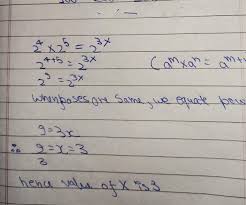 2⁴ x 2⁵ = 2³ˣ
2⁴⁺⁵ = 2³ˣ (aᵐxaⁿ = aᵐ⁺
2⁹ = 2³ˣ
when bases are same, we equate pow
9 = 3x
∴ 9/3 = x = 3
hence value of x is 3